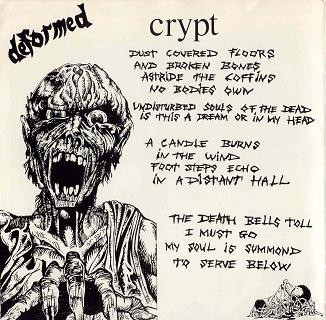 deformed
crypt
DUST COVERED FLOORS
AND BROKEN BONES
ASTRIDE THE COFFINS
NO BODIES OWN
UNDISTURBED SOULS OF THE DEAD
IS THIS A DREAM OR IN MY HEAD
A CANDLE BURNS
IN THE WIND
FOOT STEPS ECHO
IN A DISTANT HALL
THE DEATH BELLS TOLL
I MUST GO
MY SOUL IS SUMMOND
TO SERVE BELOW